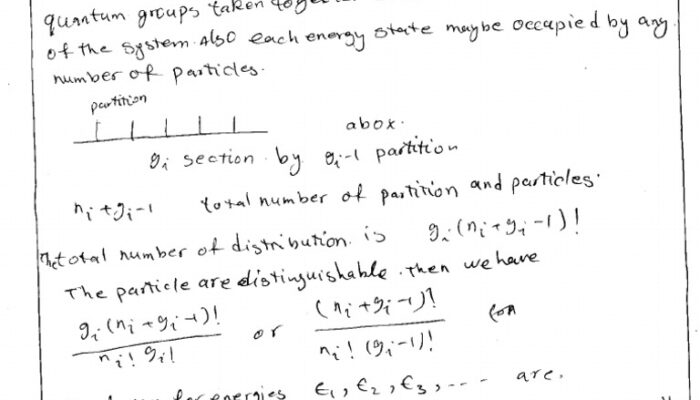 quantum groups taken
of the system. Also each energy state maybe occupied by any
number of particles.
partition
a box.
gi section by gi-1 partition
ni+gi-1 total number of partition and particles.
The total number of distribution is gi(ni+gi-1)!
The particle are distinguishable. then we have
gi(ni+gi-1)!/ni! gi! or (ni+gi-1)!/ni!(gi-1)!
energies ϵ1, ϵ2, ϵ3, --- are.